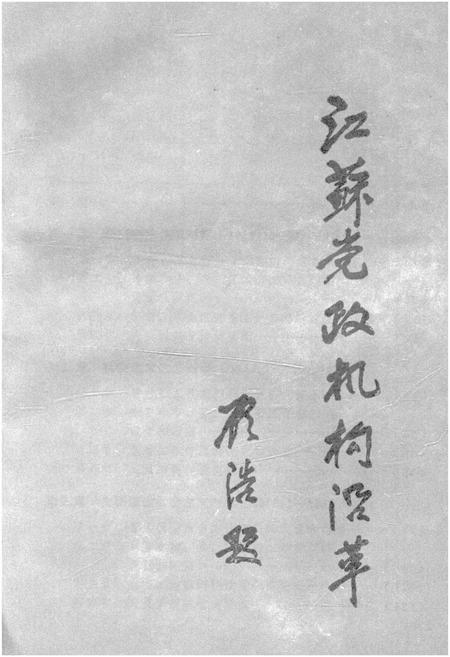 江蘇党政机构沿革
顾浩题